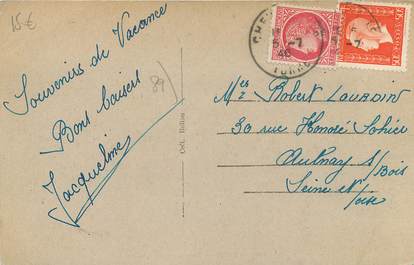 15€
Souvenirs de Vacance
Bons baisers
Jacqueline
89
Mr Robert Lourdin
30 rue Honoré Sohier
Aulnay s/
Bois
Seine et
Oise